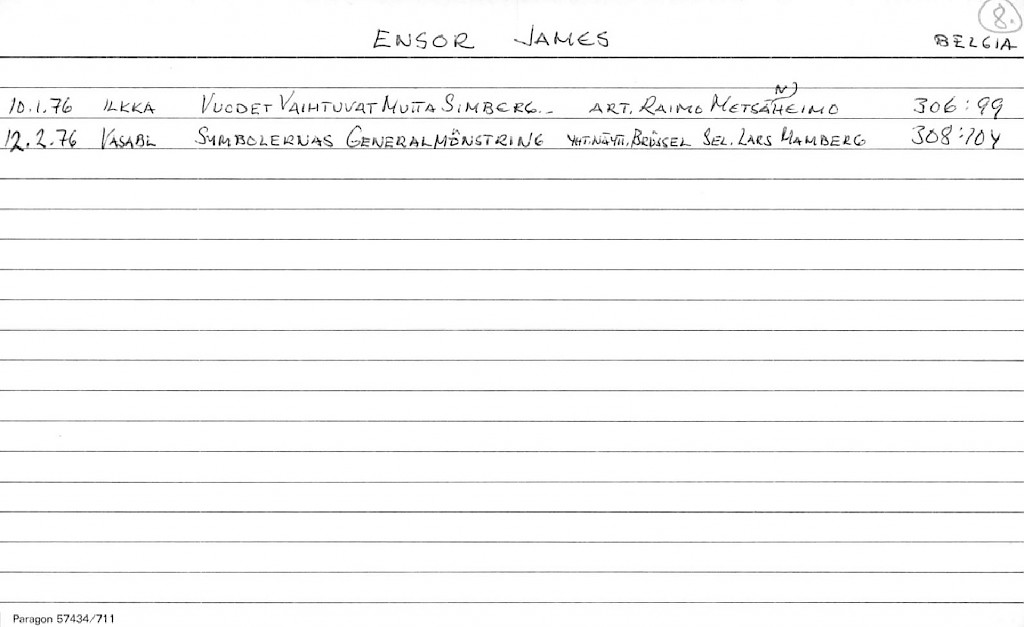 8.
ENSOR JAMES BELGIA
10.1.76 ILKKA VUODET VAIHTUVAT MUTTA SIMBERG.. ART. RAIMO METSÄNHEIMO 306:99
12.2.76 VASABL SYMBOLERNAS GENERALMÖNSTRING YHT.NÄYTT. BRÜSSEL SEL. LARS HAMBERG 308:104
Paragon 57434/711